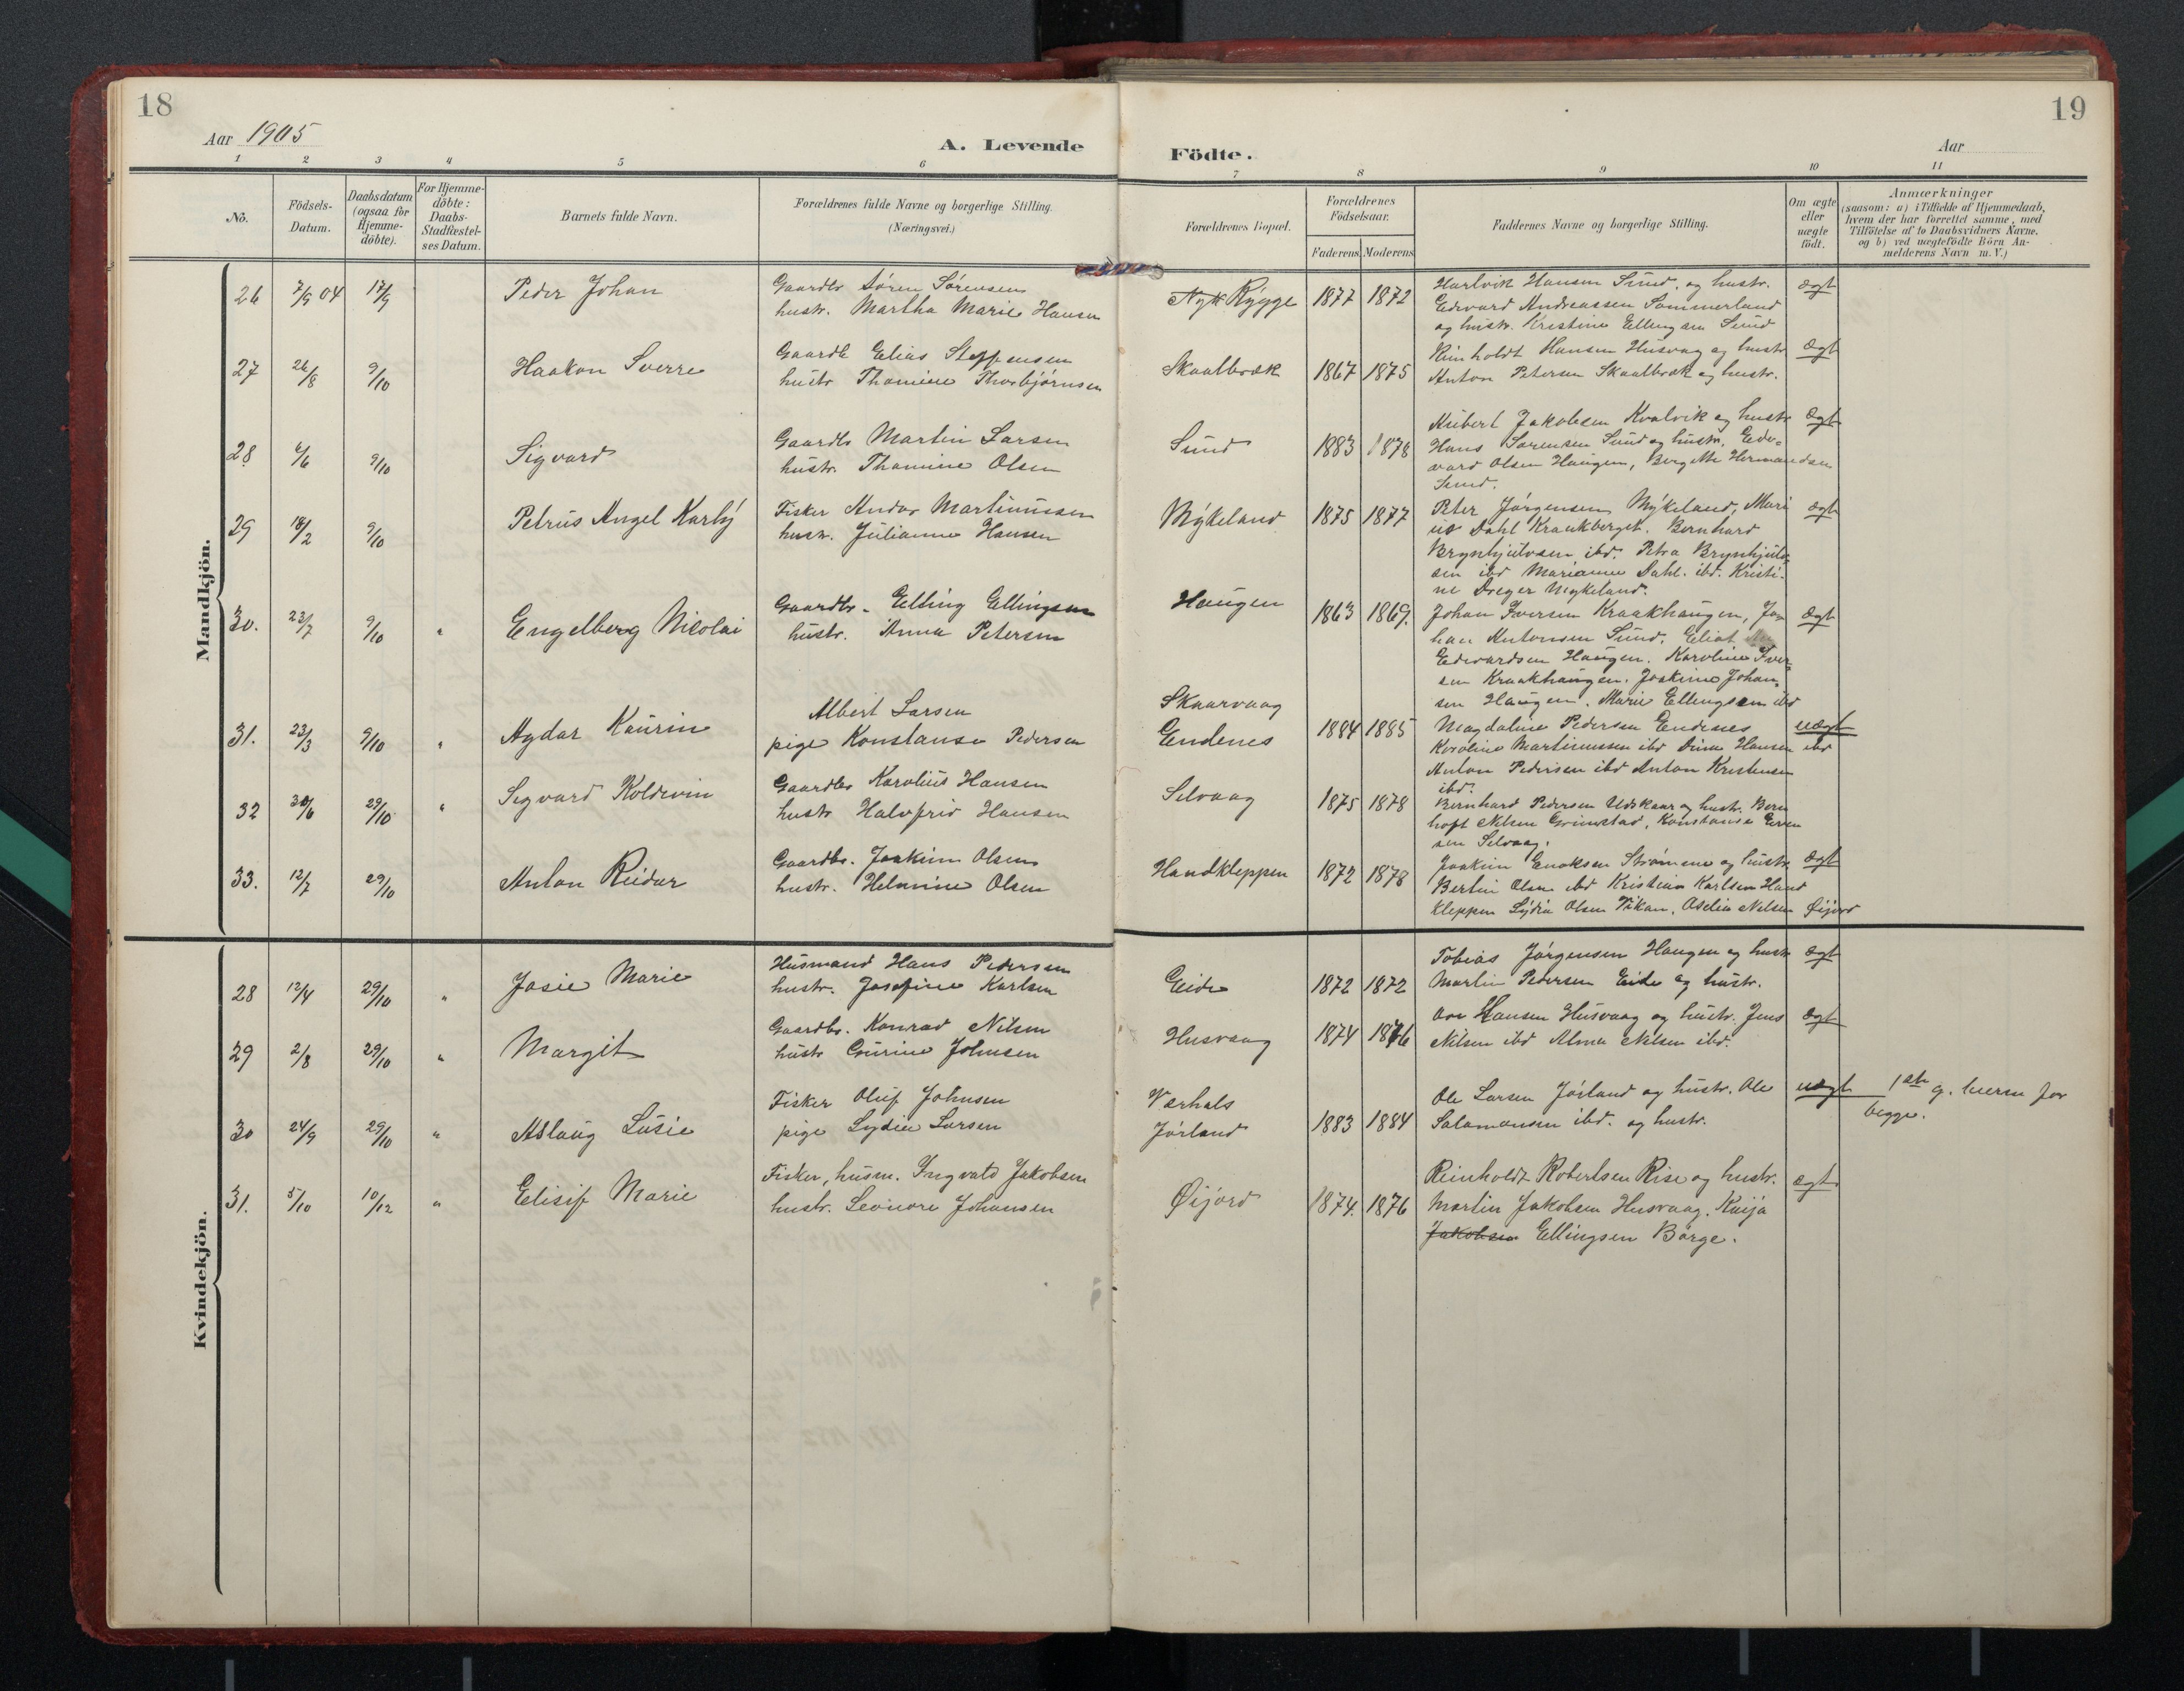 18
19
Aar 1905
A. Levende
Födte.
Aar
1 2 3 4 5 6 7 8 9 10 11
No.
Födsels-Datum.
Daabsdatum (ogsaa for Hjemme-döbte).
For Hjemme-döbte: Daabs-Stadfæstel-ses Datum.
Barnets fulde Navn.
Forældrenes fulde Navne og borgerlige Stilling. (Næringsvei.)
Forældrenes Bopæl.
Forældrenes Födselsaar.
Faderens Moderens
Faddernes Navne og borgerlige Stilling.
Om ægte eller uægte födt.
Anmærkninger
(saasom: a) i Tilfælde af Hjemmedaab,
hvem der har forrettet samme, med
Tilföielse af to Daabsvidners Navne,
og b) ved uægtefödte Börn An-
melderens Navn m. V.)
Mandkjön.
26 7/9 04 17/9 Peder Johan
Gaardbr Søren Sørensen
hustr. Martha Marie Hansen
Rygge 1877 1872
Hartvik Hansen Sund, og hustr.
Edvard Andreassen Sommerland
og hustr. Kristine Ellingsen Sund
ægt
27 26/8 9/10 Haakon Sverre
Gaardb Elias Steffensen
hustr Thomine Thorbjørnsen
Skaalbræk 1867 1875
Reinholdt Hansen Husvag og hustr
Anton Petersen Skaalbræk og hustr.
ægt
28 6/6 9/10 Sigvard
Gaardb Martin Larsen
hustr. Thomine Olsen
Sund 1883 1878
Hribert Jakobsen Kvalvik og hustr
Hans Sørensen Sund og hustr, Edv-
vard Olsen Haugen, Bergitte Hermandsen
Sund.
ægt
29 18/2 9/10 Petrus Angel Karlÿ
Fisker Andor Martinussen
hustr. Julianne Hansen
Mÿkeland 1875 1877
Peter Jørgensen Mÿkeland, Mari
us Dahl Kraakberget. Bernhard
Brynhjulvsen ibd. Petra Brynhjulv
sen ibd Marianne Dahl. ibd. Kristi-
ne Dreyer Mykeland.
ægt
30. 23/7 9/10 " Engelberg Nicolai
Gaardbr. Elling Ellingsen
hustr. Anna Petersen
Haugen 1863 1869.
Johan Iversen Kraakhaugen, Jo-
han Antonsen Sund, Eliot
Edvardsen Haugen. Karoline Iver-
sen Kraakhaugen. Joakime Johan-
sen Haugen. Marie Ellingsen ibd
ægt
31. 23/3 9/10 " Agdar Kaurin
Albert Larsen
pige Konstanse Pedersen
Skaarvaag
Endenes 1884 1885
Magdaline Pedersen Endenes
Karoline Martinussen ibd Dina Hansen ibd
Anton Pedersen ibd Anton Kristensen
ibd.
uægt
32 30/6 29/10 " Sigvard Koldevin
Gaardbr Karolius Hansen
hustr Halvfrid Hansen
Selvaag 1875 1878
Bernhard Pedersen Udskaar og hustr. Bern
hoft Nilsen Grimstad, Konstanse Even
sen Selvaag.
33. 12/7 29/10 Anton Reidar
Gaardbr. Joakim Olsen
hustr. Helmine Olsen
Handkleppen 1872 1878
Joakim Enoksen Strømme og hustr
Bertin Olsen ibd Kristian Karlsen Hand
kleppen Lÿdia Olsen Vikan, Oselie Nilsen Øijord
ægt
Kvindekjön.
28 12/4 29/10 " Josie Marie
Husmand Hans Pedersen
hustr. Josefine Karlsen
Eide 1872 1872
Tobias Jørgensen Haugen og hustr
Martin Pedersen Eide og hustr.
ægt
29 2/8 29/10 " Margit
Gaardbr. Konrad Nilsen
hustr Gurine Johnsen
Husvaag 1874 1876
Hansen Husvaag og hustr. Jens
Nilsen ibd Alma Nilsen ibd.
ægt
30 24/9 29/10 " Aslaug Lusie
Fisker Oluf Johnsen
pige Lydie Larsen
Værhals
Jørland 1883 1884
Ole Larsen Jørland og hustr. Ole
Salamonsen ibd. og hustr.
uægt
1ste g. leierm for
begge.
31. 5/10 10/12 " Elisif Marie
Fisker, husm. Ingvald Jakobsen
hustr. Leonore Johansen
Øijord 1874. 1876
Reinholdt Robertsen Rise og hustr.
Martin Jakobsen Husvaag. Kaija
Jakobsen Ellingsen Børge.
ægt